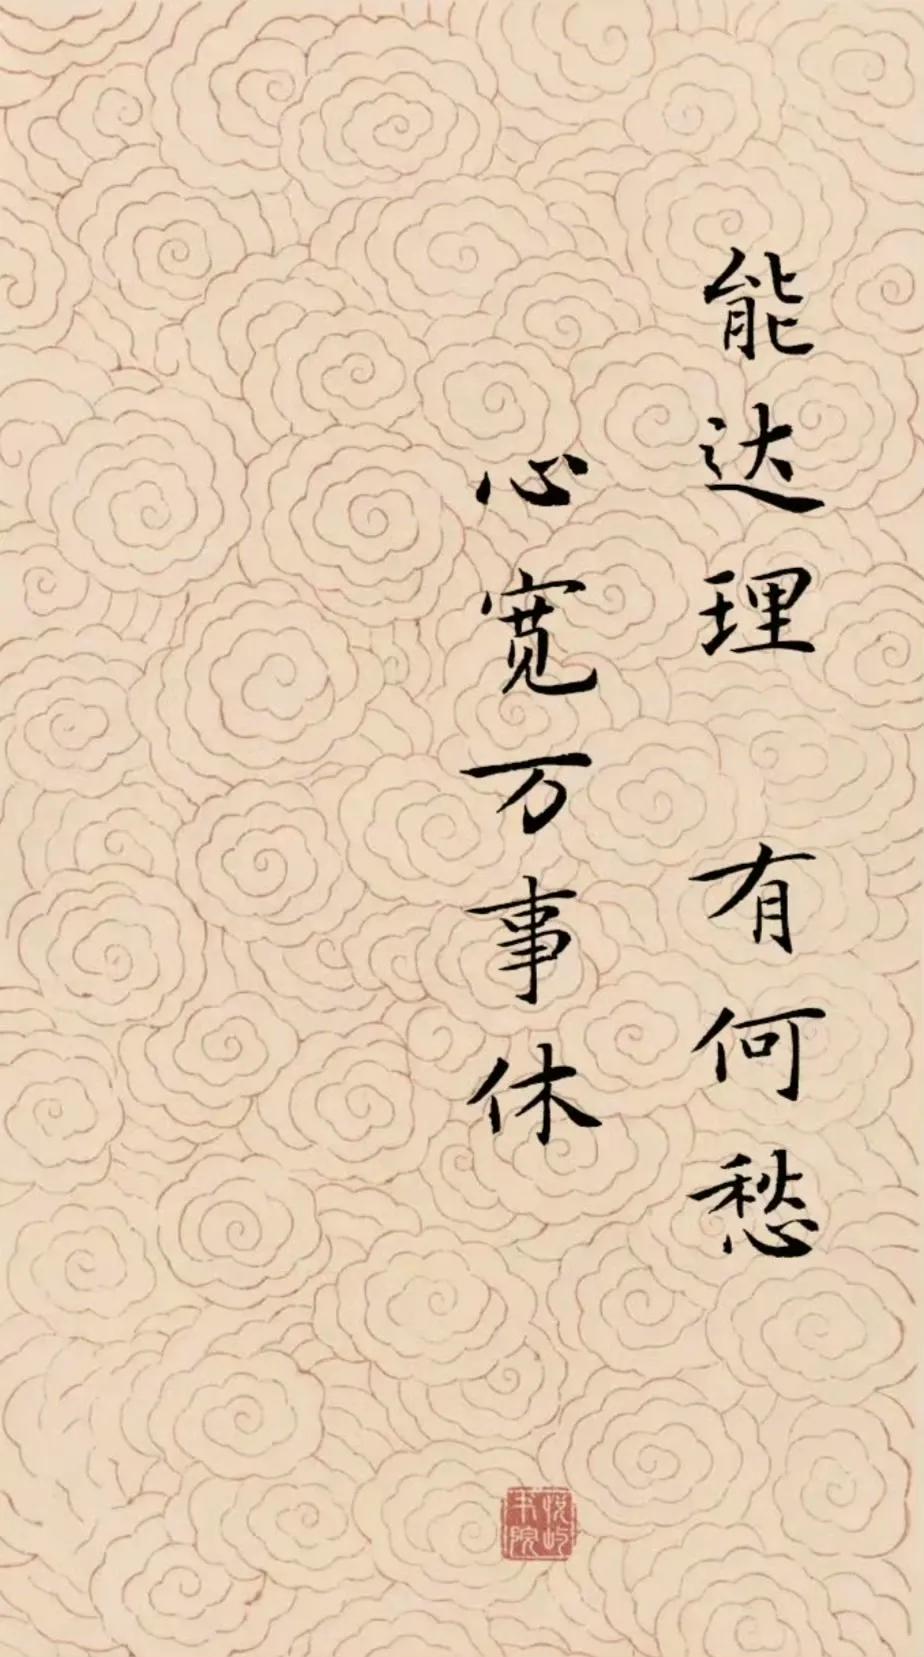 能达理 有何愁
心宽万事休